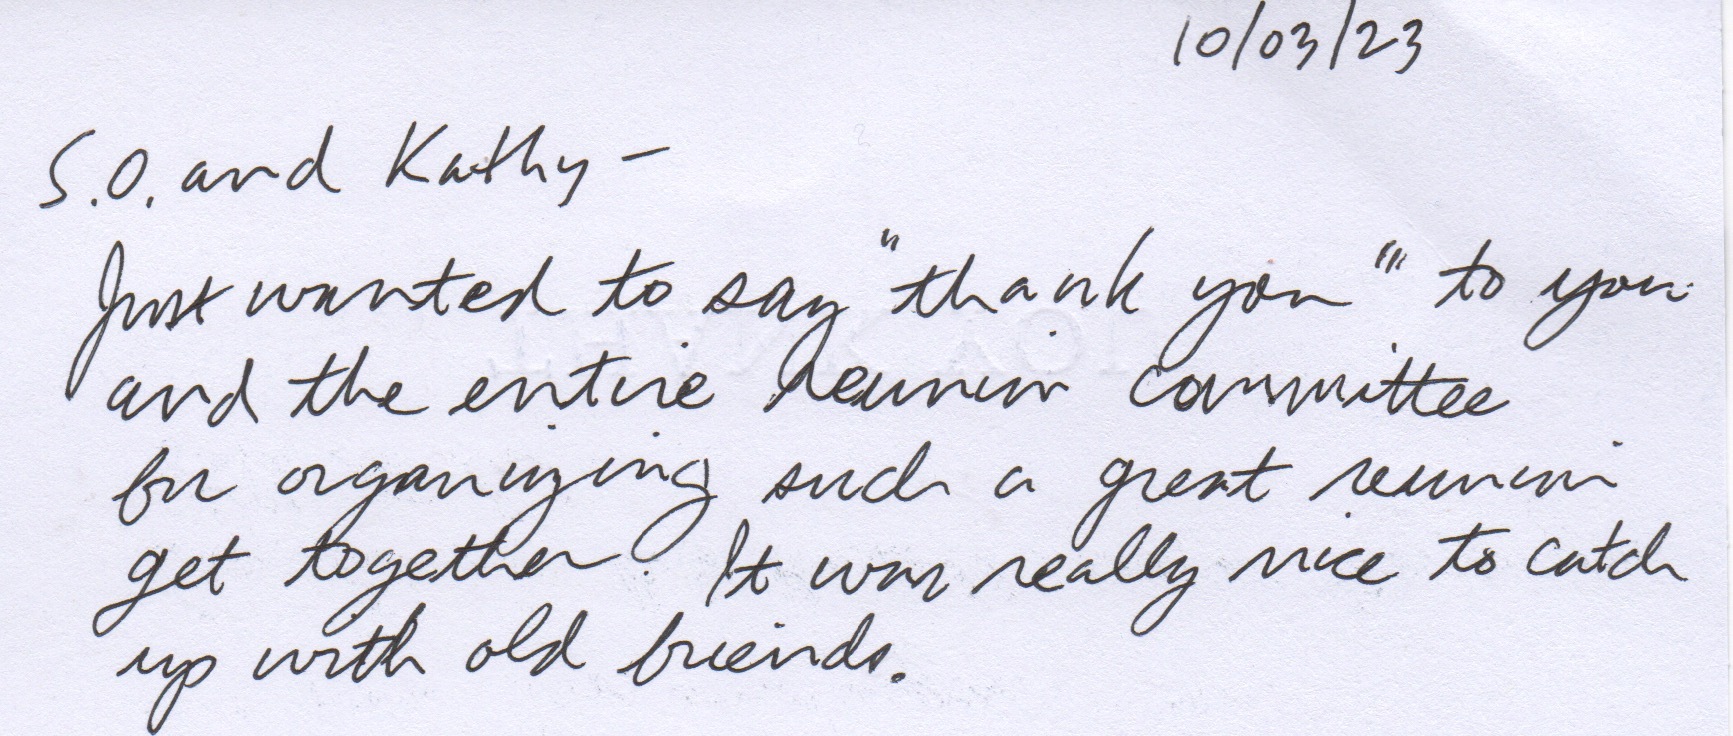 10/03/23
S.O. and Kathy –
Just wanted to say "thank you" to you
and the entire reunion committee
for organizing such a great reunion
get together. It was really nice to catch
up with old friends.